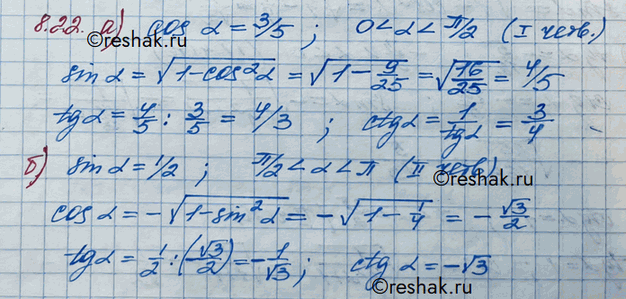 8.22. а) cos α = 3/5 ; 0 < α < π/2 (I четв.)
©reshak.ru
sin α = √(1-cos²α) = √(1-9/25) = √(16/25) = 4/5
tg α = 4/5 : 3/5 = 4/3 ; ctg α = 1/tg α = 3/4
б) sin α = 1/2 ; π/2 < α < π (II четв)
cos α = -√(1-sin²α) = -√(1-1/4) = -√3/2
tg α = 1/2 : (-√3/2) = -1/√3 ; ctg α = -√3
©reshak.ru